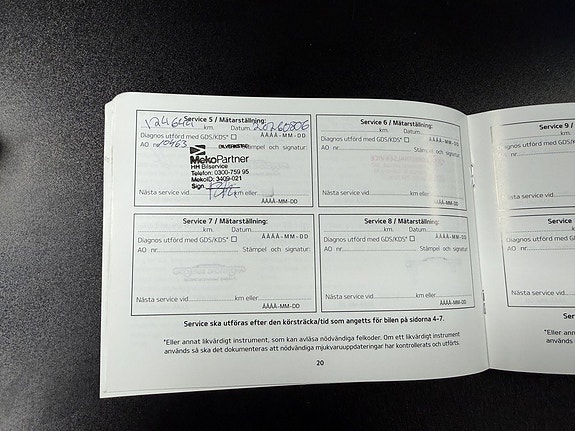 Service 5 / Mätarställning:
124644 km. Datum 20260806
Diagnos utförd med GDS/KDS* ☐ ÅÅÅÅ-MM-DD
AO nr. 20463 Stämpel och signatur:
MekoPartner
HH Bilservice
Telefon: 0300-759 95
MekoID: 3409-021
Sign.
Nästa service vid km eller
ÅÅÅÅ-MM-DD
Service 6 / Mätarställning:
km. Datum
Diagnos utförd med GDS/KDS* ☐ ÅÅÅÅ-MM-DD
AO nr. Stämpel och signatur:
Nästa service vid km eller
ÅÅÅÅ-MM-DD
Service 7 / Mätarställning:
km. Datum
Diagnos utförd med GDS/KDS* ☐ ÅÅÅÅ-MM-DD
AO nr. Stämpel och signatur:
Nästa service vid km eller
ÅÅÅÅ-MM-DD
Service 8 / Mätarställning:
km. Datum
Diagnos utförd med GDS/KDS* ☐ ÅÅÅÅ-MM-DD
AO nr Stämpel och signatur:
Nästa service vid km eller
ÅÅÅÅ-MM-DD
Service ska utföras efter den körsträcka/tid som angetts för bilen på sidorna 4-7.
*Eller annat likvärdigt instrument, som kan avläsa nödvändiga felkoder. Om ett likvärdigt instrument
används så ska det dokumenteras att nödvändiga mjukvaruuppdateringar har kontrollerats och utförts.
20
Service 9 /
km.
Diagnos utförd me
AO nr.
Nästa service vid
Service
Diagnos utförd
AO nr.
Nästa service
Service s
*Eller annat
används så